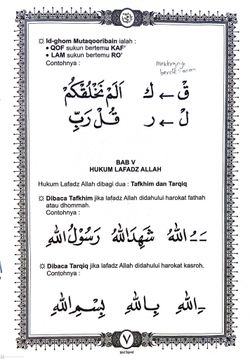 Id-ghom Mutaqooribain ialah :
• QOF sukun bertemu KAF'
• LAM sukun bertemu RO'
Contohnya :
قْ ← ك اَلَمْ نَخْلُقْكُمْ
لْ ← ر قُلْ رَبِّ
BAB V
HUKUM LAFADZ ALLAH
Hukum Lafadz Allah dibagi dua : Tafkhim dan Tarqiq
Dibaca Tafkhim jika lafadz Allah didahului harokat fathah
atau dhommah.
Contohnya :
ـَـُ اللهُ شَهِدَ اللهُ رَسُوْلُ اللهِ
Dibaca Tarqiq jika lafadz Allah didahului harokat kasroh.
Contohnya :
ـِـ اللهِ بِاللهِ بِسْمِ اللهِ
٧